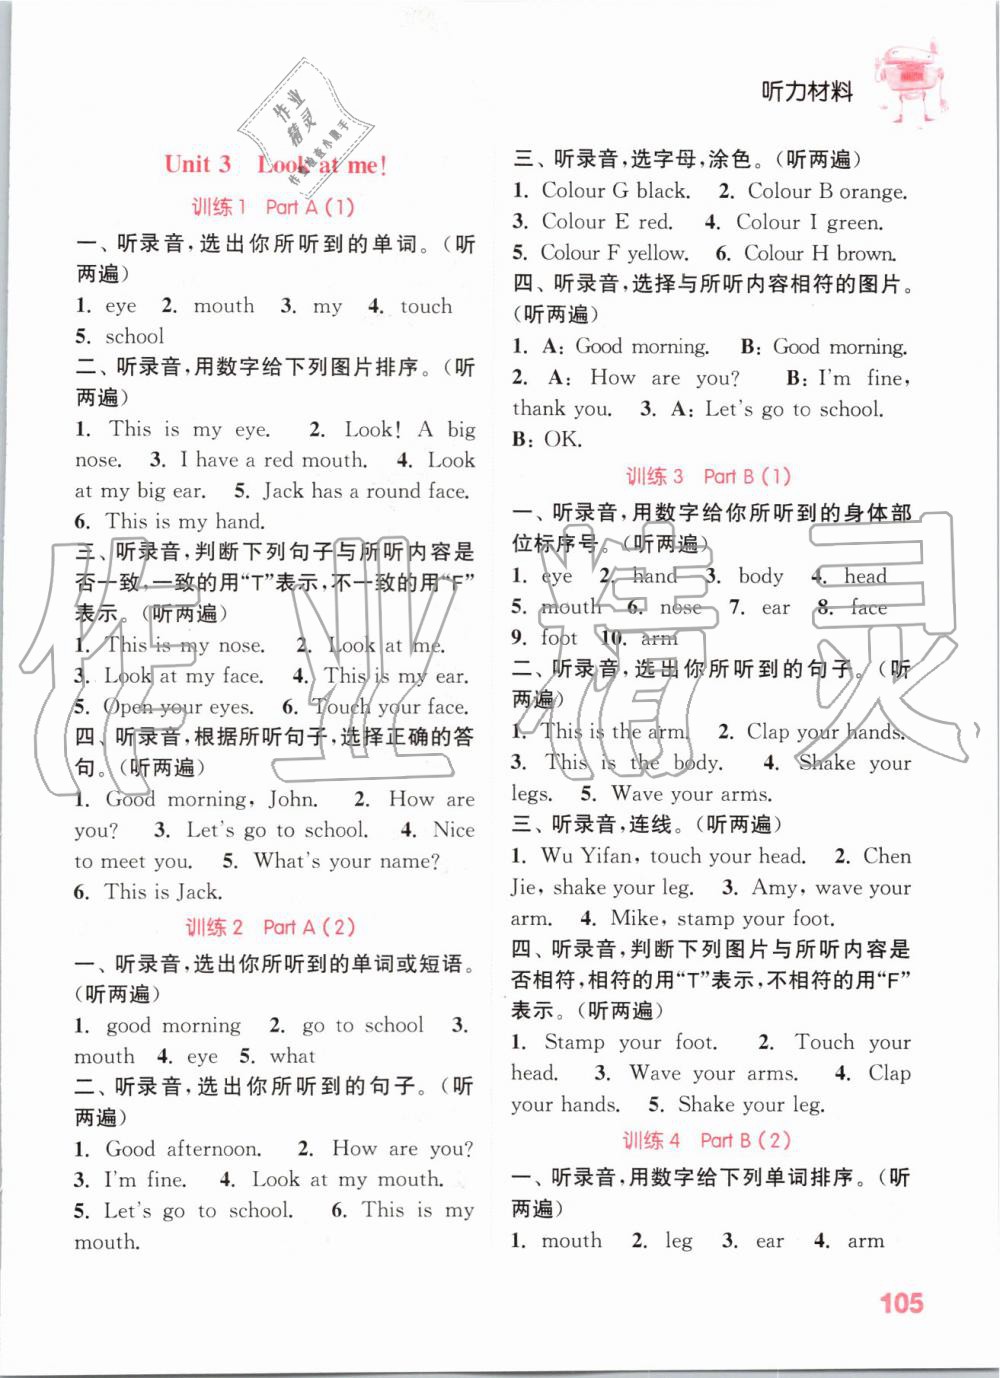 听力材料
Unit 3 Look at me!
训练1 Part A (1)
一、听录音,选出你所听到的单词。(听
两遍)
1. eye 2. mouth 3. my 4. touch
5. school
二、听录音,用数字给下列图片排序。(听
两遍)
1. This is my eye. 2. Look! A big
nose. 3. I have a red mouth. 4. Look
at my big ear. 5. Jack has a round face.
6. This is my hand.
三、听录音,判断下列句子与所听内容是
否一致,一致的用“T”表示,不一致的用“F”
表示。(听两遍)
1. This is my nose. 2. Look at me.
3. Look at my face. 4. This is my ear.
5. Open your eyes. 6. Touch your face.
四、听录音,根据所听句子,选择正确的答
句。(听两遍)
1. Good morning, John. 2. How are
you? 3. Let's go to school. 4. Nice
to meet you. 5. What's your name?
6. This is Jack.
训练2 Part A (2)
一、听录音,选出你所听到的单词或短语。
(听两遍)
1. good morning 2. go to school 3.
mouth 4. eye 5. what
二、听录音,选出你所听到的句子。(听
两遍)
1. Good afternoon. 2. How are you?
3. I'm fine. 4. Look at my mouth.
5. Let's go to school. 6. This is my
mouth.
三、听录音,选字母,涂色。(听两遍)
1. Colour G black. 2. Colour B orange.
3. Colour E red. 4. Colour I green.
5. Colour F yellow. 6. Colour H brown.
四、听录音,选择与所听内容相符的图片。
(听两遍)
1. A: Good morning. B: Good morning.
2. A: How are you? B: I'm fine,
thank you. 3. A: Let's go to school.
B: OK.
训练3 Part B (1)
一、听录音,用数字给你所听到的身体部
位标序号。(听两遍)
1. eye 2. hand 3. body 4. head
5. mouth 6. nose 7. ear 8. face
9. foot 10. arm
二、听录音,选出你所听到的句子。(听
两遍)
1. This is the arm. 2. Clap your hands.
3. This is the body. 4. Shake your
legs. 5. Wave your arms.
三、听录音,连线。(听两遍)
1. Wu Yifan, touch your head. 2. Chen
Jie, shake your leg. 3. Amy, wave your
arm. 4. Mike, stamp your foot.
四、听录音,判断下列图片与所听内容是
否相符,相符的用“T”表示,不相符的用“F”
表示。(听两遍)
1. Stamp your foot. 2. Touch your
head. 3. Wave your arms. 4. Clap
your hands. 5. Shake your leg.
训练4 Part B (2)
一、听录音,用数字给下列单词排序。(听
两遍)
1. mouth 2. leg 3. ear 4. arm
105
作业精灵
作业
精灵
作业检查小助手